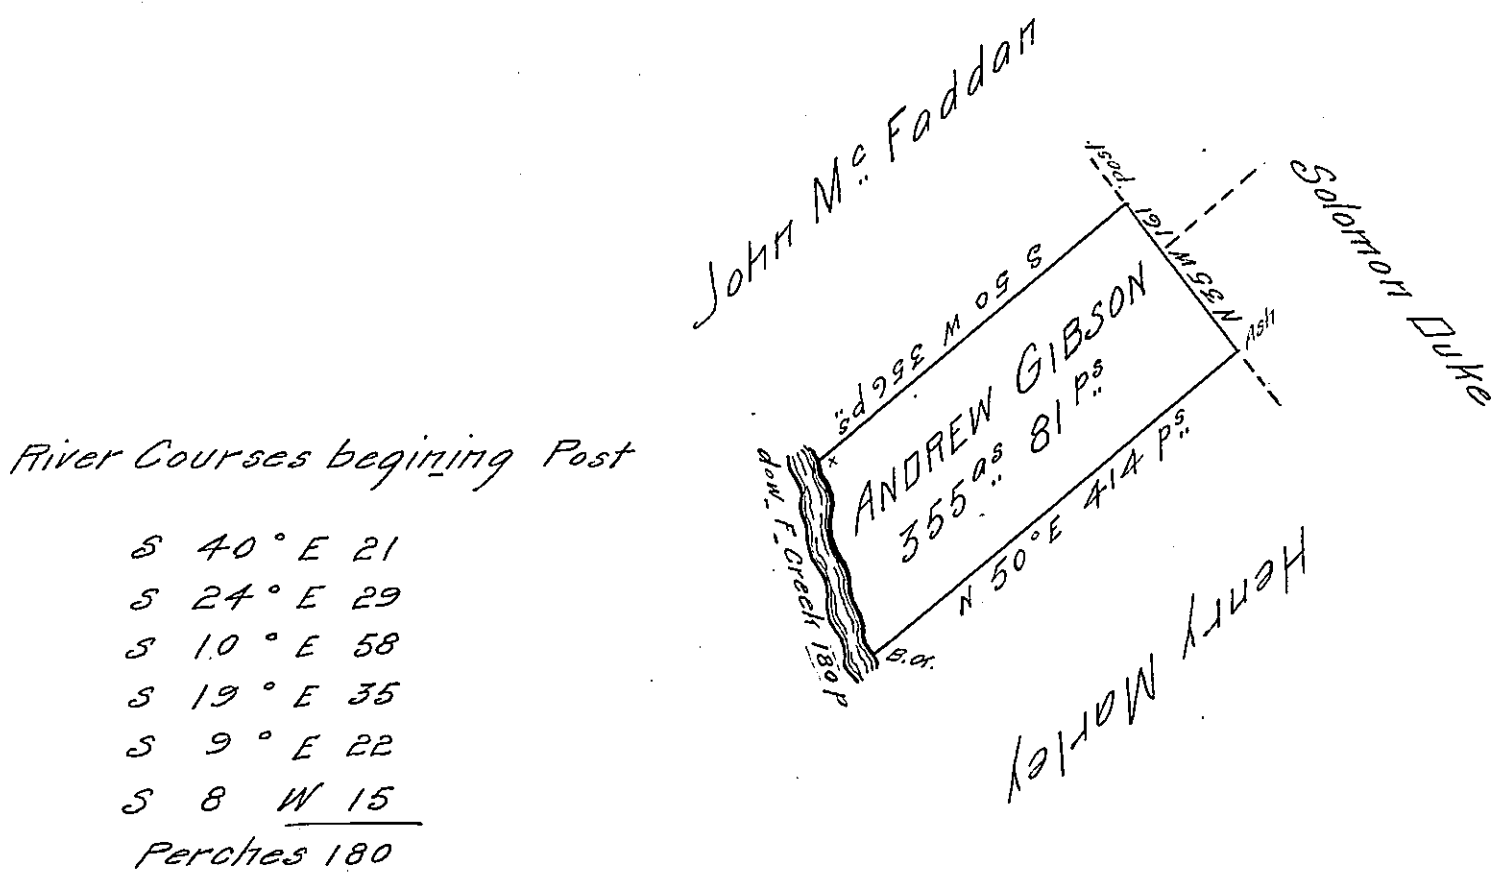 River Courses begining Post
S 40° E 21
S 24° E 29
S 10° E 58
S 19° E 35
S 9° E 22
S 8 W 15
Perches 180
John Mc Faddan
post
Solomon Duke
S 50 W 356 ps
N 35 W 161
Ash
ANDREW GIBSON
355 as 81 ps
N 50° E 414 ps
dow_ F_ Creek 180 P
x
B.or.
Henry Marley